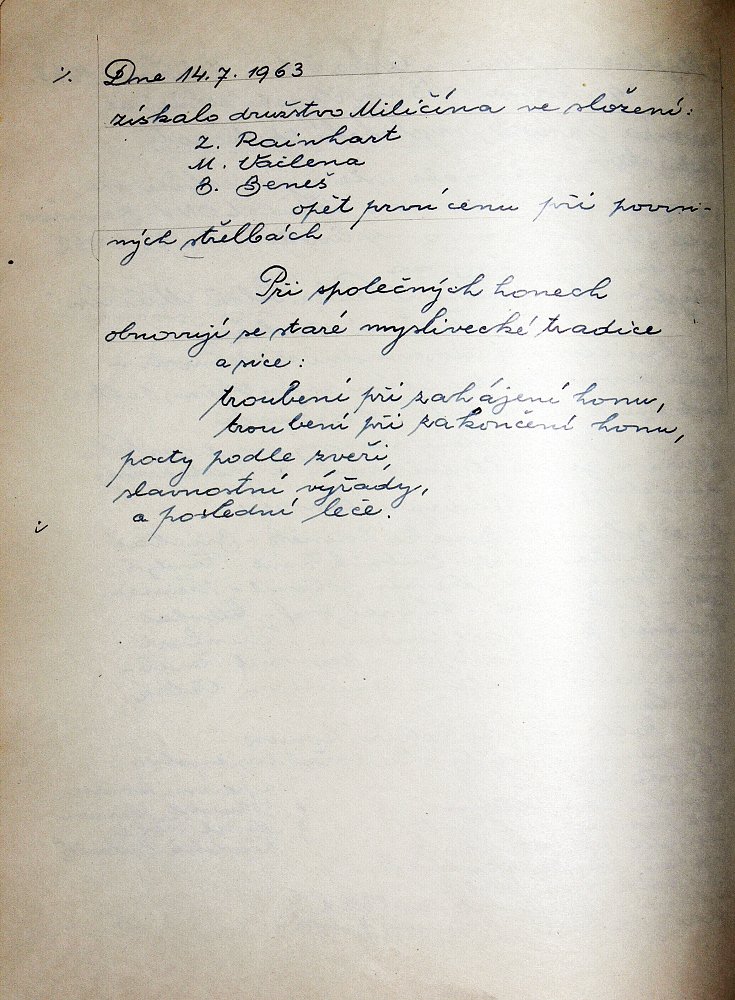 Dne 14.7.1963
získalo družstvo Miličína ve složení:
Z. Rainhart
M. Vačlena
B. Beneš
opět první cenu při povin-
ných střelbách
Při společných honech
obnovují se staré myslivecké tradice
a sice:
troubení při zahájení honu,
troubení při zakončení honu,
pocty podle zvěři,
slavnostní výřady,
a poslední leče.